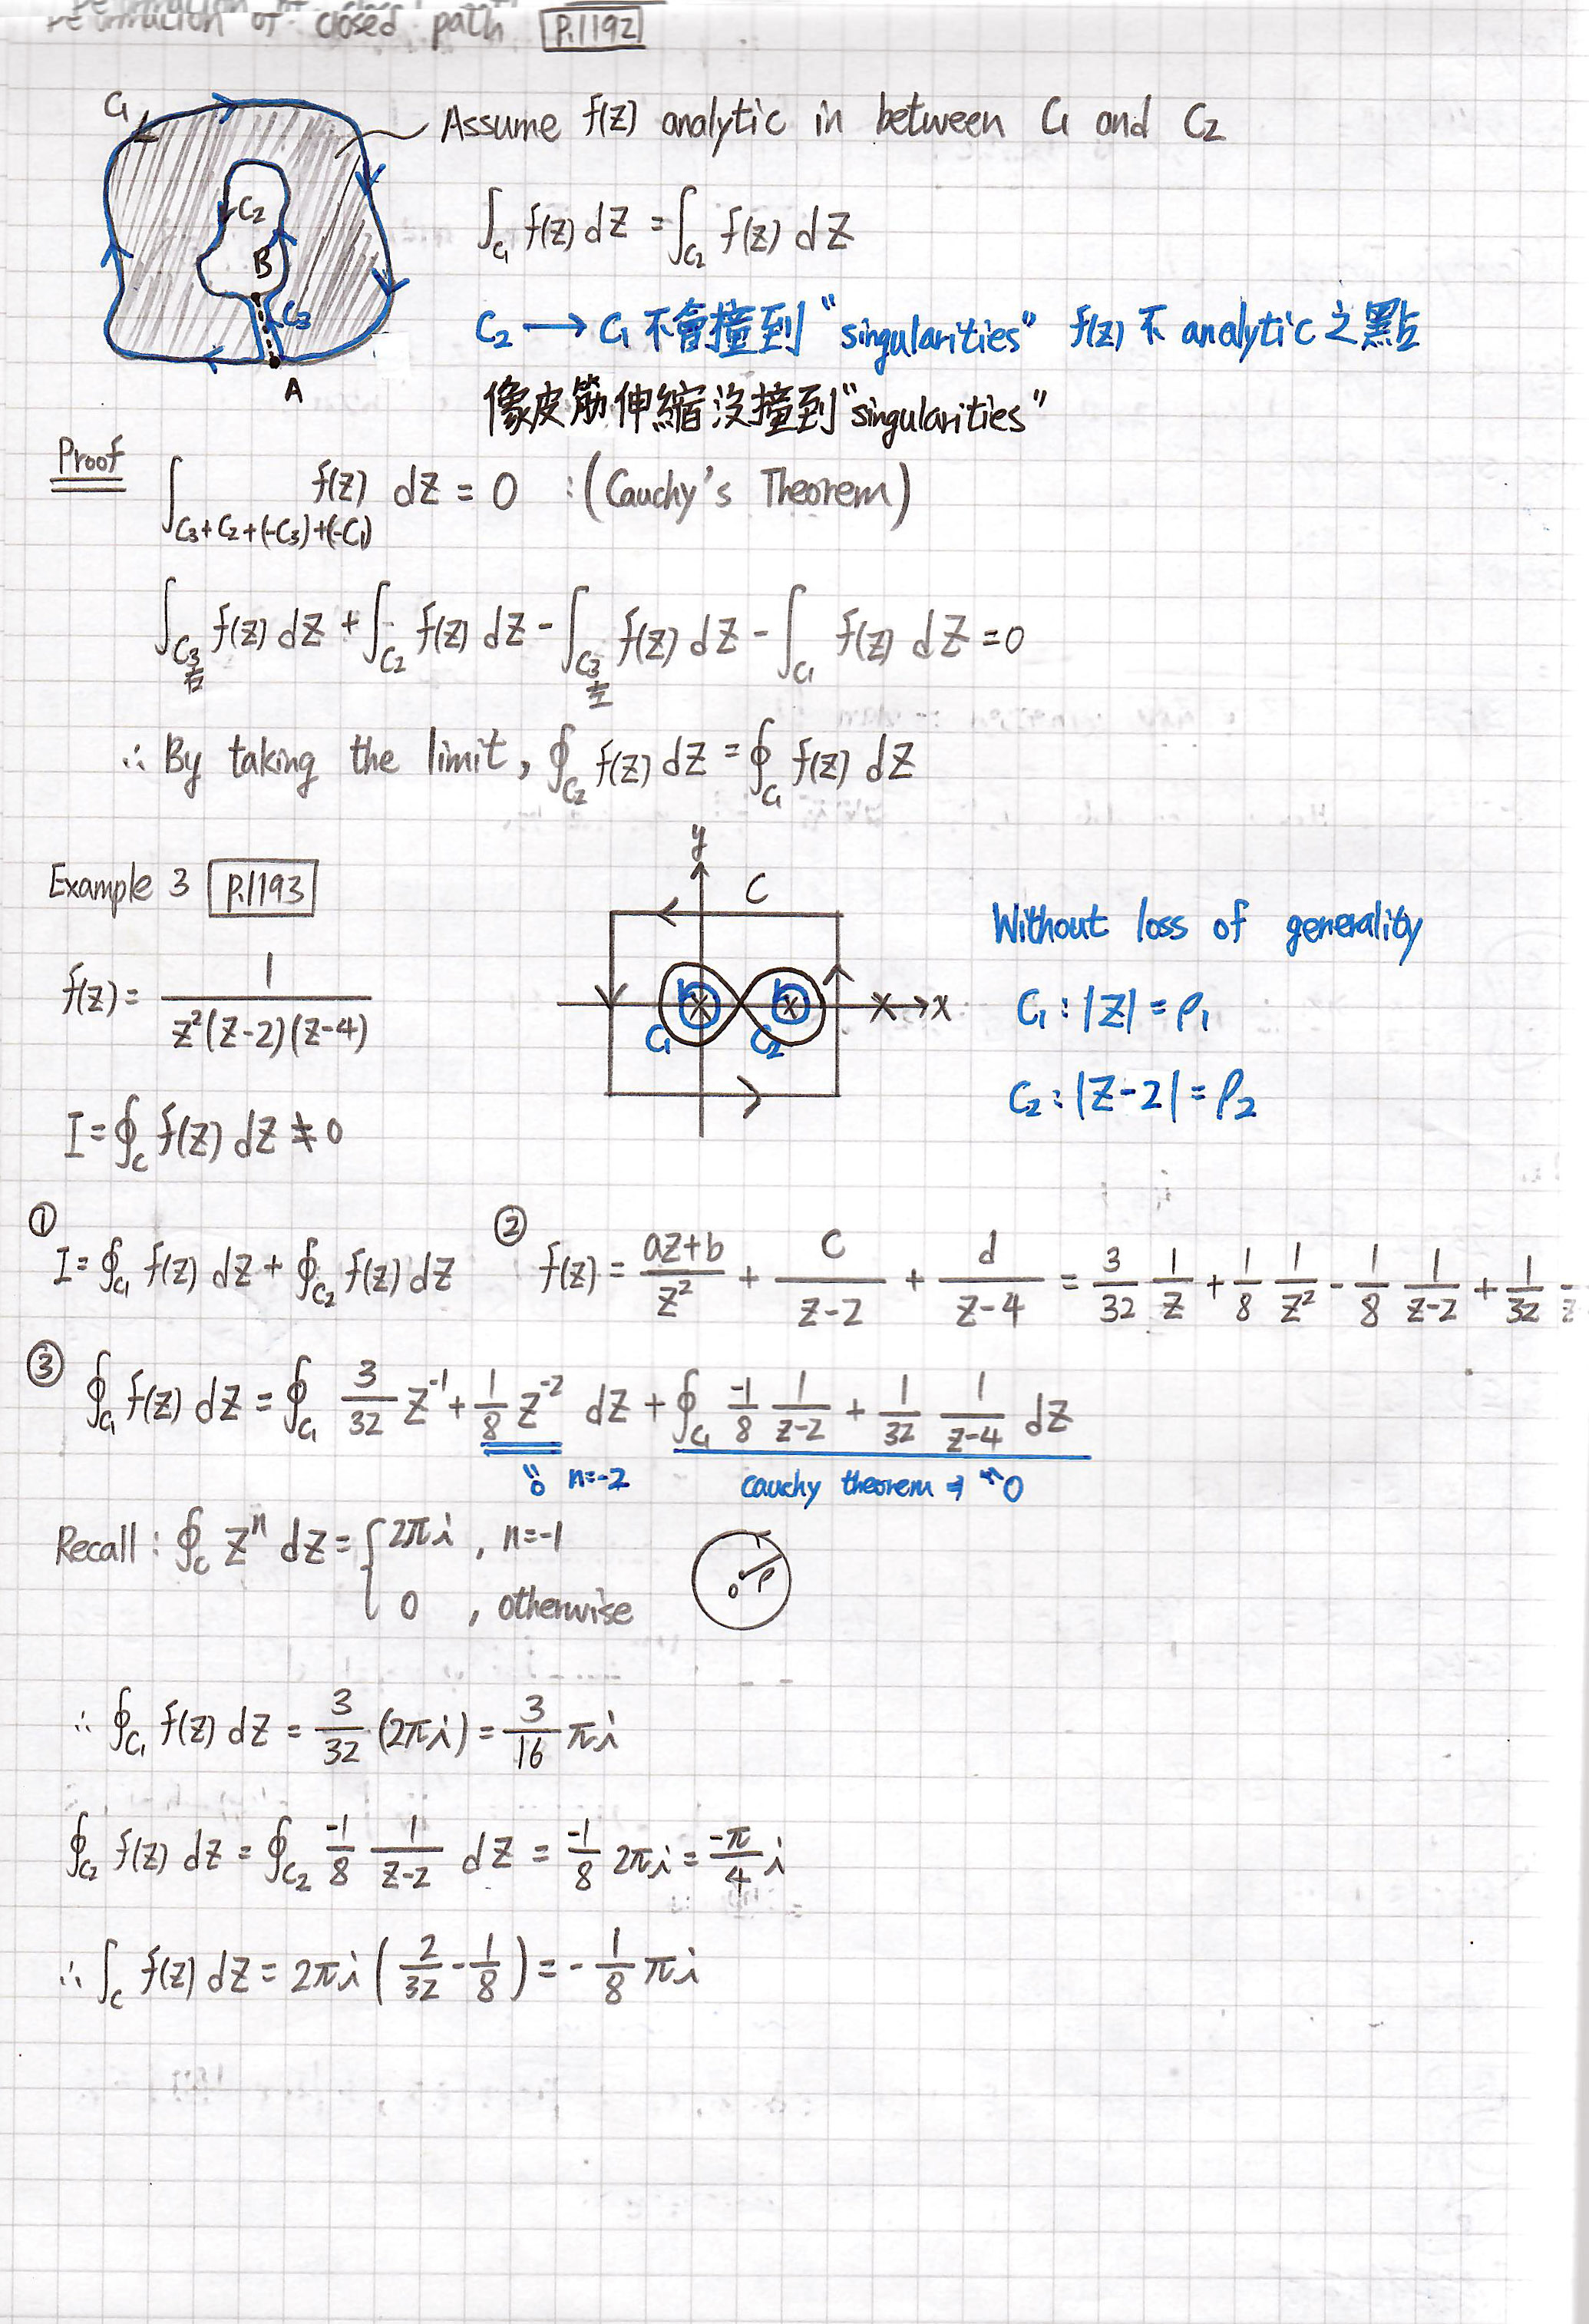 of closed path P.1192
C₁
C₂
B
C₃
A
Assume f(z) analytic in between C₁ and C₂
∫_C₁ f(z) dz = ∫_C₂ f(z) dz
C₂ → C₁ 不會撞到 "singularities" f(z) 不 analytic 之點
像皮筋伸縮沒撞到 "singularities"
Proof
∫_{C₃+C₂+(-C₃)+(-C₁)} f(z) dz = 0 : (Cauchy's Theorem)
∫_C₃右 f(z) dz + ∫_C₂ f(z) dz - ∫_C₃左 f(z) dz - ∫_C₁ f(z) dz = 0
∴ By taking the limit, ∮_C₂ f(z) dz = ∮_C₁ f(z) dz
Example 3 P.1193
f(z) = 1 / z²(z-2)(z-4)
I = ∮_C f(z) dz ≠ 0
y
C
x
C₁
C₂
Without loss of generality
C₁ : |z| = ρ₁
C₂ : |z-2| = ρ₂
① I = ∮_C₁ f(z) dz + ∮_C₂ f(z) dz
② f(z) = (az+b)/z² + c/(z-2) + d/(z-4) = 3/32 1/z + 1/8 1/z² - 1/8 1/(z-2) + 1/32
③ ∮_C₁ f(z) dz = ∮_C₁ 3/32 z⁻¹ + 1/8 z⁻² dz + ∮_C₁ -1/8 1/(z-2) + 1/32 1/(z-4) dz
0 n=-2
cauchy theorem ⇒ "0
Recall : ∮_C zⁿ dz = { 2πi , n=-1
0 , otherwise
0 ρ
∴ ∮_C₁ f(z) dz = 3/32 (2πi) = 3/16 πi
∮_C₂ f(z) dz = ∮_C₂ -1/8 1/(z-2) dz = -1/8 2πi = -π/4 i
∴ ∫_C f(z) dz = 2πi ( 2/32 - 1/8 ) = - 1/8 πi